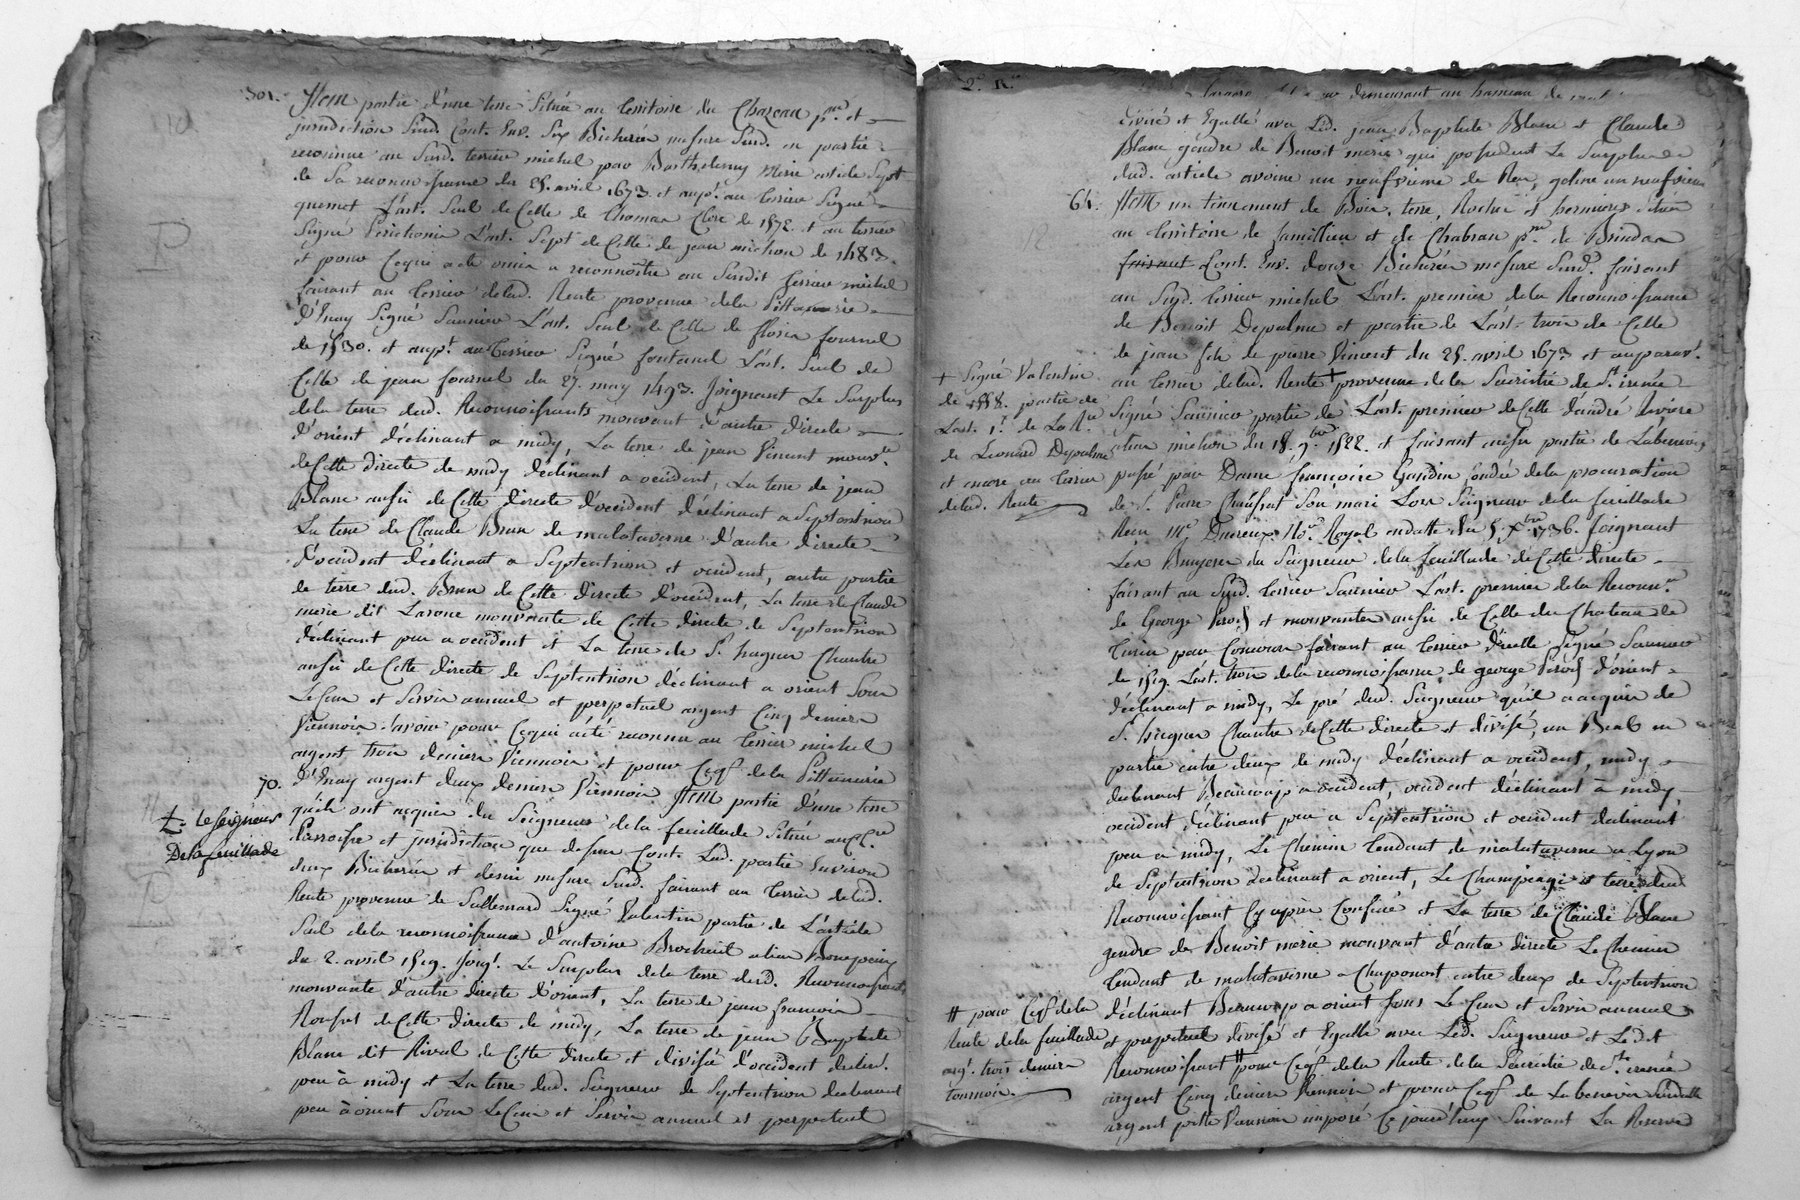 301.
Item partie d'une terre Située au territoire du Chazeau p.se et
jurisdiction Susd. Cont. Env. Six Bicherées mesure Susd. en partie
reconnue au Susd. terrier michel par Barthelemy Merie article Sept
de Sa reconnoissance du 25. avril 1673. et aup.t au terrier Signé
quemet L'art. Seul de Celle de Thomas Clere de 1572. et au terrier
Signé Perichonis L'art. Sept de Celle de jean michon de 1483.
et pour Cequi a été omis a reconnoître au Susdit terrier michel
faisant au terrier delad. Rente provenue dela Pittancerie
d'Enay Signé Saunier L'art. Seul de Celle de floris fournel
de 1530. et aup.t au terrier Signé fontanel L'art. Seul de
Celle de jean fournel du 27. may 1493. Joignant Le Surplus
dela terre dud. Reconnoissants mouvant d'autre directe
d'orient déclinant a midy, La terre de jean Vincent mouv.te
de Cette directe de midy déclinant a occident, La terre de jean
Blanc aussi de Cette directe d'occident déclinant a Septentrion
La terre de Claude Brun de malataverne d'autre directe
d'occident déclinant a Septentrion et occident, autre partie
de terre dud. Brun de Cette directe d'occident, La terre de Claude
merie dit Larose mouvante de Cette directe de Septentrion
déclinant peu a occident et La terre de S.r Chantre
aussi de Cette directe de Septentrion déclinant a orient Sous
Le Cens et Servis annuel et perpetuel argent Cinq deniers
Viennois Savoir pour Cequi a été reconnu au terrier michel
argent trois deniers Viennois et pour Ceq.f de la Pittancerie
70.
d'Enay argent deux deniers Viennois Item partie d'une terre
qu'ils ont acquise du Seigneur de la feuillade Située auxd.
‡. le seigneur
De la feuillade
Parroisse et jurisdiction que dessus Cont. Lad. partie Environ
deux Bicherées et demi mesure Susd. faisant au terrier delad.
Rente provenue de Sallemard Signé Valentin partie de L'article
Seul dela reconnoissance d'antoine Brocheut alias Bonspoix
du 2. avril 1519. Joig.t Le Surplus de la terre desd. Reconnoissants
mouvante d'autre directe d'orient, La terre de jean françois
Ronfut de Cette directe de midy, La terre de jean Baptiste
Blanc dit Rival de Cette directe et divisée d'occident declin.t
peu à midy et La terre dud. Seigneur de Septentrion declinant
peu à orient Sous Le Cens et Servis annuel et perpetuel
2.e R.
demeurant au hameau de
divisé et Egallé avec Led. jean Baptiste Blanc et Claude
Blanc gendre de Benoit merie qui possedent Le Surplus
dud. article avoine un neufvieme de Ras, geline un neufvieme
64.
Item un tinnement de Bois, terre, Rochié et hermures situés
au territoire de famillieu et de Chabran p.sse de Brindas
faisant Cont. Env. douze Bicherées mesure Susd. faisant
au Susd. terrier michel L'art. premier dela Reconnoissance
de Benoit Depalme et partie de L'art. trois de Celle
de jean fils de pierre Vincent du 25. avril 1673 et auparav.t
au terrier delad. Rente + provenue de la Sacristie de S.t irenée
+ Signé Valentin
de 1558. partie de
L'art. 1.er de La R.ce
de Leonard Depalme
et encore au terrier
delad. Rente
Signé Saunier partie de L'art. premier de Celle d'andré Riviere
alias michon du 18. 9.bre 1522. et faisant aussi partie de Labenevis
passé par Dame françoise Gaudin fondée dela procuration
de S.r Pierre Chaussat Son mari Lors Seigneur de la feuillade
Reçu M.e Dusreux No.re Royal en datte du 5. X.bre 1736. Joignant
Les Bruyeres du Seigneur de la feuillade de Cette directe
faisant au Susd. terrier Saunier L'art. premier de la Reconn.ce
de George et mouvantes aussi de Celle du Chateau de
par Concours faisant au terrier d'icelle Signé Saunier
de 1519. L'art. trois de la reconnoissance de george d'orient
déclinant a midy, Le pré dud. Seigneur qu'il a acquis de
S.r Chantre de Cette directe et divisé, un Beal en
partie entre deux de midy déclinant a occident, midy
declinant Beaucoup a occident, occident déclinant à midy
occident déclinant peu a Septentrion et occident declinant
peu a midy, Le Chemin tendant de malataverne a Lyon
de Septentrion declinant a orient, Le Champéage et terre dud.
Reconnoissant Cyapres Confiné et La terre de Claude Blanc
gendre de Benoit merie mouvant d'autre directe Le Chemin
tendant de malataverne a Chaponost entre deux de Septentrion
déclinant Beaucoup a orient Sous Le Cens et Servis annuel
et perpetuel divisé et Egallé avec Led. Seigneur et Ledit
# pour Ceq.f de la
Rente de la feuillade
arg.t trois deniers
tournois.
Reconnoissant # pour Ceq.f de la Rente de la Sacristie de S.t irenée
argent Cinq deniers Viennois et pour Ceq.f de Labenevis Susdatté
argent pitte Viennois imposé Ce jourd'huy Suivant La Reserve